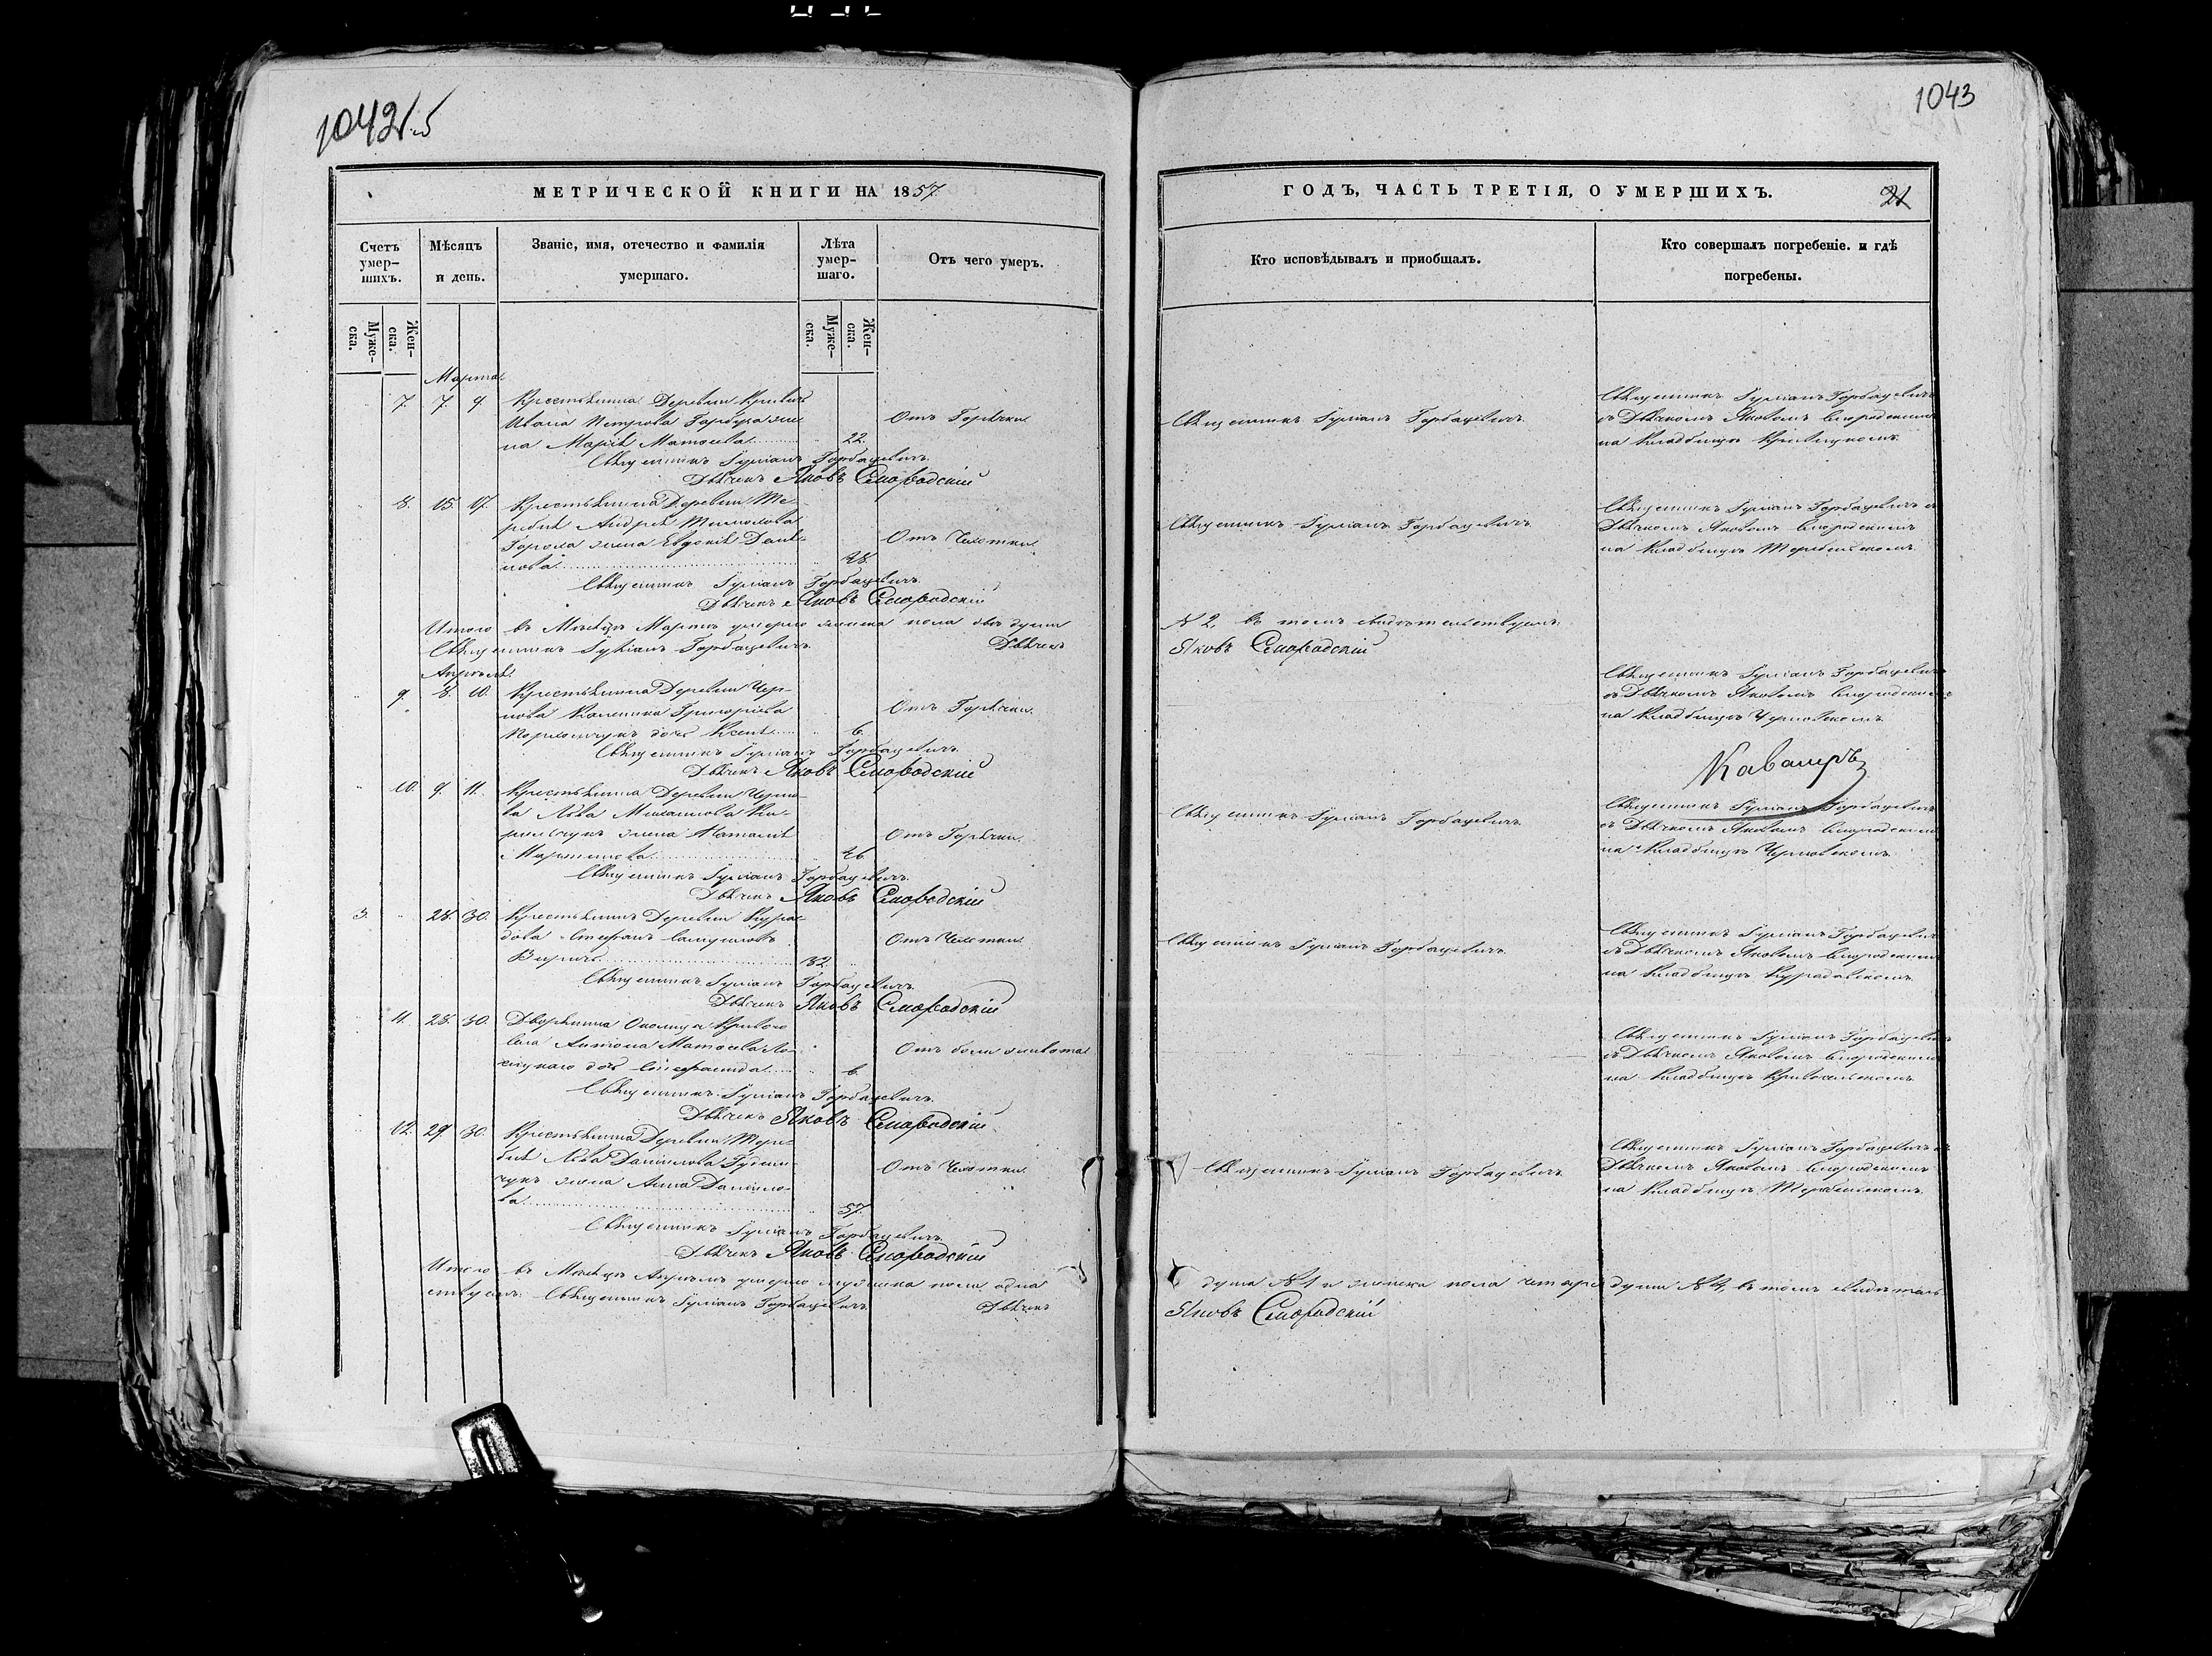 1042об
1043
МЕТРИЧЕСКОЙ КНИГИ НА 1857
ГОДЪ, ЧАСТЬ ТРЕТІЯ, О УМЕРШИХЪ.
21
Счетъ умер-
шихъ.
Мѣсяцъ
и день.
Званіе, имя, отечество и фамилія
умершаго.
Лѣта
умер-
шаго.
Отъ чего умеръ.
Кто исповѣдывалъ и пріобщалъ.
Кто совершалъ погребеніе. и гдѣ
погребены.
Муже-
ска.
Жен-
ска.
Муже-
ска.
Жен-
ска.
Марта
7. 7. 9. Крестьянина Деревни
Ивана Петрова Гарбуза же
на Марія Матѳеева 22. Отъ Горячки
Священникъ Іуліанъ Горбацевичъ
Дьячекъ Яковъ Смородскій
Священникъ Іуліанъ Горбацевичъ
Священникъ Іуліанъ Горбацевичъ
съ Дьячкомъ Яковомъ Смородскимъ
на Кладбищѣ
8. 15. 17. Крестьянина Деревни Те-
ребня Андрея
жена Евдокія Дани-
лова 48. Отъ Чахотки
Священникъ Іуліанъ Горбацевичъ
Дьячекъ Яковъ Смородскій
Священникъ Іуліанъ Горбацевичъ
Священникъ Іуліанъ Горбацевичъ съ
Дьячкомъ Яковомъ Смородскимъ
на Кладбищѣ Теребенскомъ
Итого въ Мѣсяцѣ Мартѣ умерло женска пола двѣ души № 2, въ томъ свидѣтельствуемъ
Священникъ Іуліанъ Горбацевичъ Дьячекъ Яковъ Смородскій
Апрѣля
9. 8. 10. Крестьянина Деревни Чер-
нова Григорьева
дочь Ксенія 6. Отъ Горячки
Священникъ Іуліанъ Горбацевичъ
Дьячекъ Яковъ Смородскій
Священникъ Іуліанъ Горбацевичъ
съ Дьячкомъ Яковомъ Смородскимъ
на Кладбищѣ Черновскомъ
10. 9. 11. Крестьянина Деревни Черно-
ва Льва Михаилова Ки-
рильчукъ жена Наталія
Мартинова 46. Отъ Горячки
Священникъ Іуліанъ Горбацевичъ
Дьячекъ Яковъ Смородскій
Священникъ Іуліанъ Горбацевичъ
Священникъ Іуліанъ Горбацевичъ
съ Дьячкомъ Яковомъ Смородскимъ
на Кладбищѣ Черновскомъ
3. 28. 30. Крестьянинъ Деревни Курра-
дова Стефанъ Самуиловъ
32. Отъ Чахотки
Священникъ Іуліанъ Горбацевичъ
Дьячекъ Яковъ Смородскій
Священникъ Іуліанъ Горбацевичъ
Священникъ Іуліанъ Горбацевичъ
съ Дьячкомъ Яковомъ Смородскимъ
на Кладбищѣ Куррадовскомъ
11. 28. 30. Дворянина Околицы Кривого
Села Антона Матѳеева
дочь Стефанида 6. Отъ боли живота
Священникъ Іуліанъ Горбацевичъ
Дьячекъ Яковъ Смородскій
Священникъ Іуліанъ Горбацевичъ
съ Дьячкомъ Яковомъ Смородскимъ
на Кладбищѣ Кривосельскомъ
12. 29. 30. Крестьянина Деревни Тере-
бня Льва Данилова
жена Анна Данило-
ва 57. Отъ Чахотки
Священникъ Іуліанъ Горбацевичъ
Дьячекъ Яковъ Смородскій
Священникъ Іуліанъ Горбацевичъ
Священникъ Іуліанъ Горбацевичъ съ
Дьячкомъ Яковомъ Смородскимъ
на Кладбищѣ Теребенскомъ
Итого въ Мѣсяцѣ Апрѣлѣ умерло мужеска пола одна душа № 1 и женска пола четыре души № 4, въ томъ свидѣтель-
ствуемъ: Священникъ Іуліанъ Горбацевичъ Дьячекъ Яковъ Смородскій